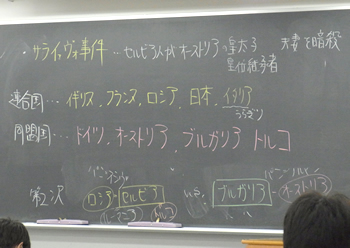 ・サライェヴォ事件…セルビア人がオーストリアの皇太子 夫妻を暗殺
皇位継承者
連合国…イギリス、フランス、ロシア、日本、イタリア
うらぎり
同盟国…ドイツ、オーストリア ブルガリア トルコ
ロシア－セルビア ブルガリア－オーストリア
ルーマニア